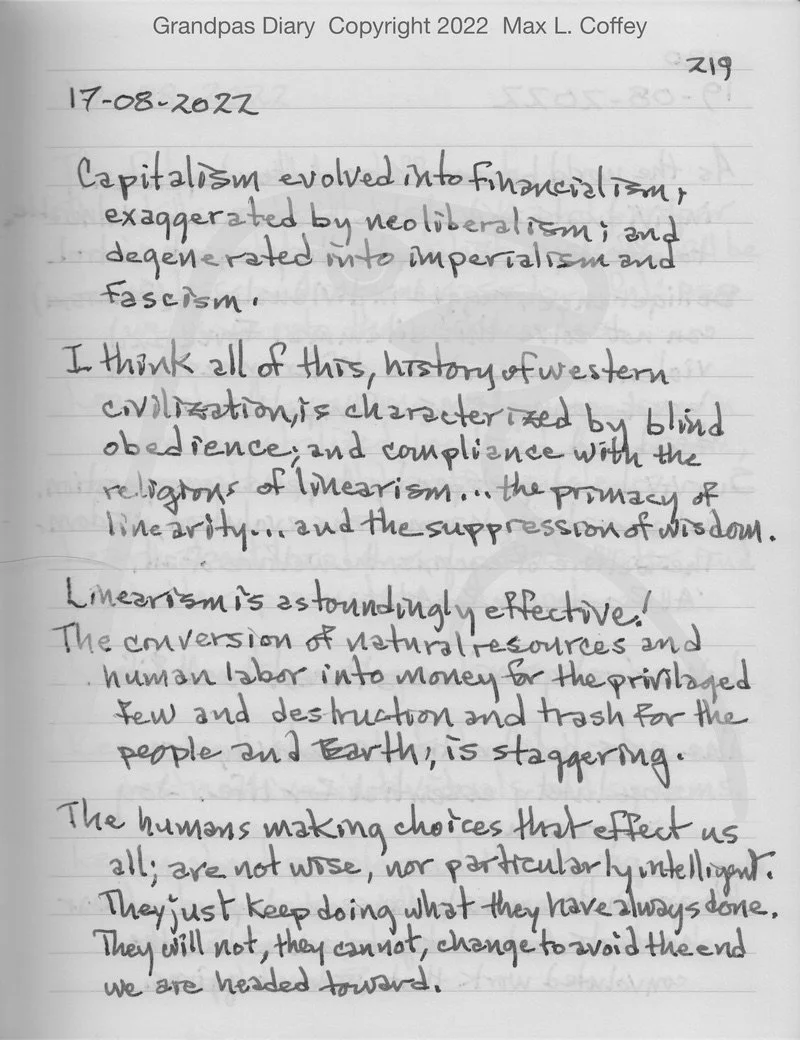 Grandpas Diary Copyright 2022 Max L. Coffey
219
17-08-2022
Capitalism evolved into financialism,
exaggerated by neoliberalism; and
degenerated into imperialism and
fascism.
I think all of this, history of western
civilization, is characterized by blind
obedience; and compliance with the
religions of linearism... the primacy of
linearity... and the suppression of wisdom.
Linearism is astoundingly effective!
The conversion of natural resources and
human labor into money for the privilaged
few and destruction and trash for the
people and Earth, is staggering.
The humans making choices that effect us
all; are not wise, nor particularly intelligent.
They just keep doing what they have always done.
They will not, they cannot, change to avoid the end
we are headed toward.